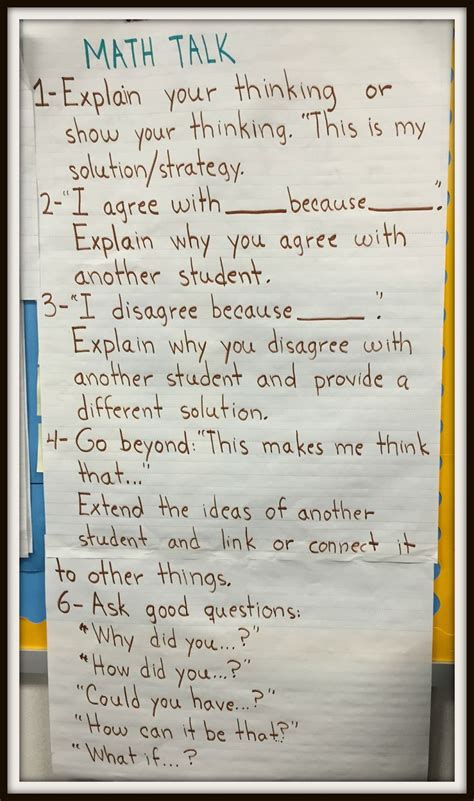 MATH TALK
1-Explain your thinking or
show your thinking. "This is my
solution/strategy.
2-"I agree with ____ because ____".
Explain why you agree with
another student.
3-"I disagree because ____".
Explain why you disagree with
another student and provide a
different solution.
4- Go beyond: "This makes me think
that..."
Extend the ideas of another
student and link or connect it
to other things.
6- Ask good questions:
"Why did you...?"
"How did you...?"
"Could you have...?"
"How can it be that?"
"What if...?